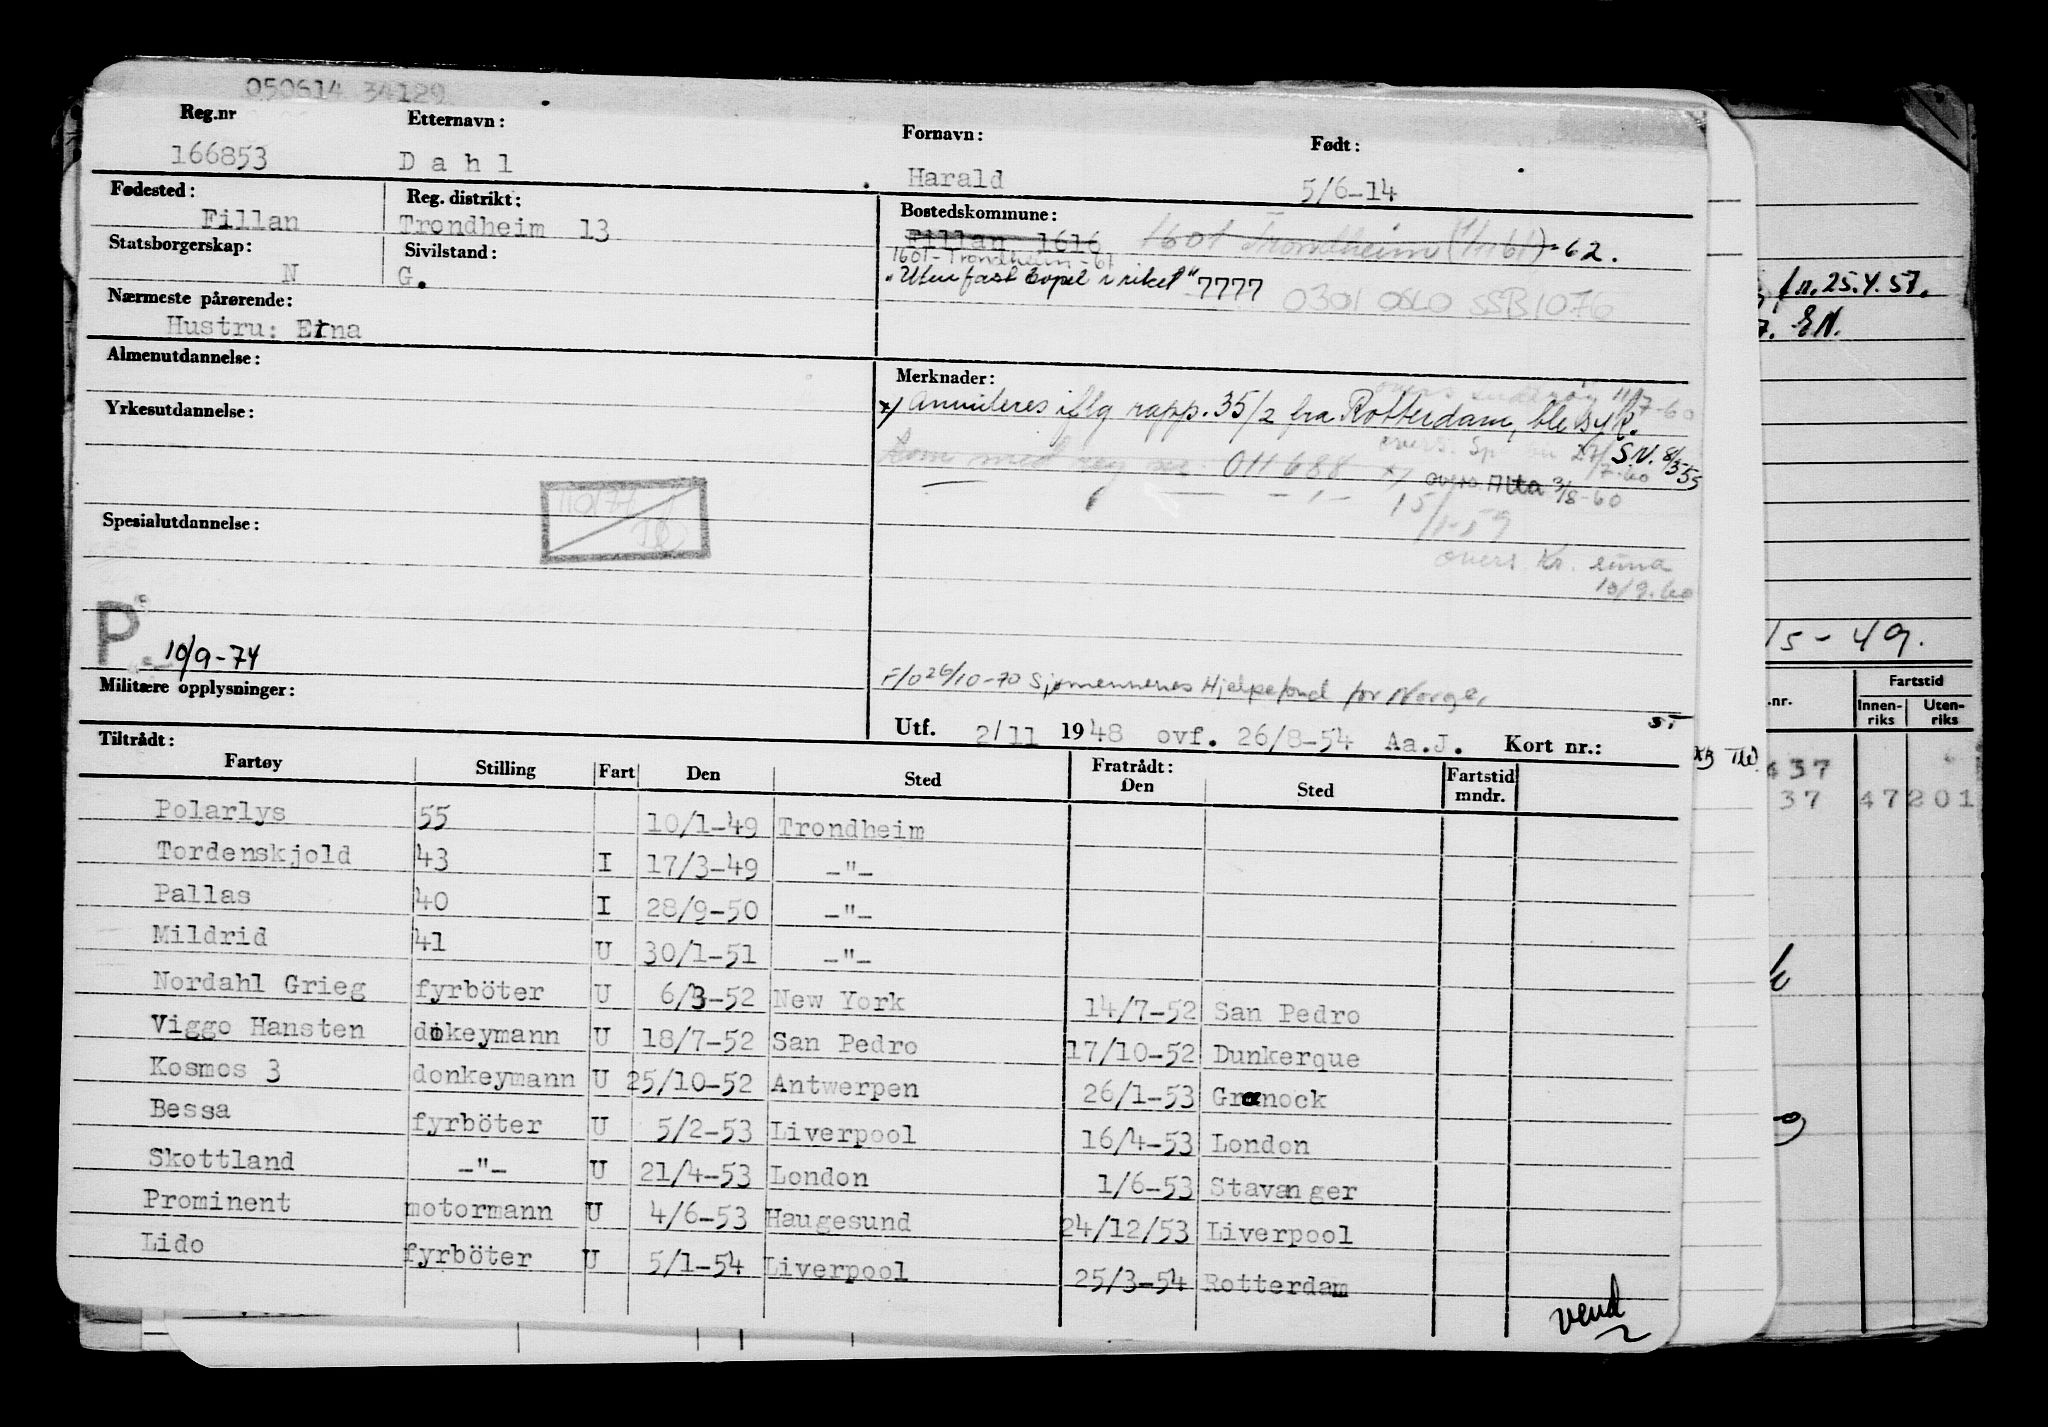 050614 34129
Reg.nr Etternavn: Fornavn: Født:
166853 Dahl Harald 5/6-14
Fødested: Reg. distrikt: Bostedskommune:
Fillan Trondheim 13 Fillan 1616 1601 Trondheim (1/1 61) -62.
Statsborgerskap: Sivilstand: 1601-Trondheim-67
N G. "Uten fast bopel i riket" 7777 0301 OSLO SSB1076
Nærmeste pårørende:
Hustru: Erna
Almenutdannelse: Merknader:
11/7-60
x) Annuleres iflg rapp. 35/2 fra Rotterdam, ble syk.
Yrkesutdannelse: overs. S.N. 8/3 55
Kom med reg nr. 011688 x) overs. Alta 3/8-60
15/1-59
Spesialutdannelse: 110/77
overs. Kr.
10/9.60
P 10/9-74
Militære opplysninger: F/O 26/10-70 Sjømennenes Hjelpefond for Norge.
Utf. 2/11 1948 ovf. 26/8-54 Aa.J. Kort nr.:
Tiltrådt: Fratrådt:
Fartøy Stilling Fart Den Sted Den Sted Fartstid mndr.
Polarlys 55 10/1-49 Trondheim
Tordenskjold 43 I 17/3-49 -"-
Pallas 40 I 28/9-50 -"-
Mildrid 41 U 30/1-51 -"-
Nordahl Grieg fyrböter U 6/3-52 New York 14/7-52 San Pedro
Viggo Hansten dokeymann U 18/7-52 San Pedro 17/10-52 Dunkerque
Kosmos 3 donkeymann U 25/10-52 Antwerpen 26/1-53 Granock
Bessa fyrböter U 5/2-53 Liverpool 16/4-53 London
Skottland -"- U 21/4-53 London 1/6-53 Stavanger
Prominent motormann U 4/6-53 Haugesund 24/12/53 Liverpool
Lido fyrböter U 5/1-54 Liverpool 25/3-54 Rotterdam
vend
fr. 25.4.57.
7. EN.
15-49.
nr. Fartstid
Innen-riks Uten-riks
637
37 47 201